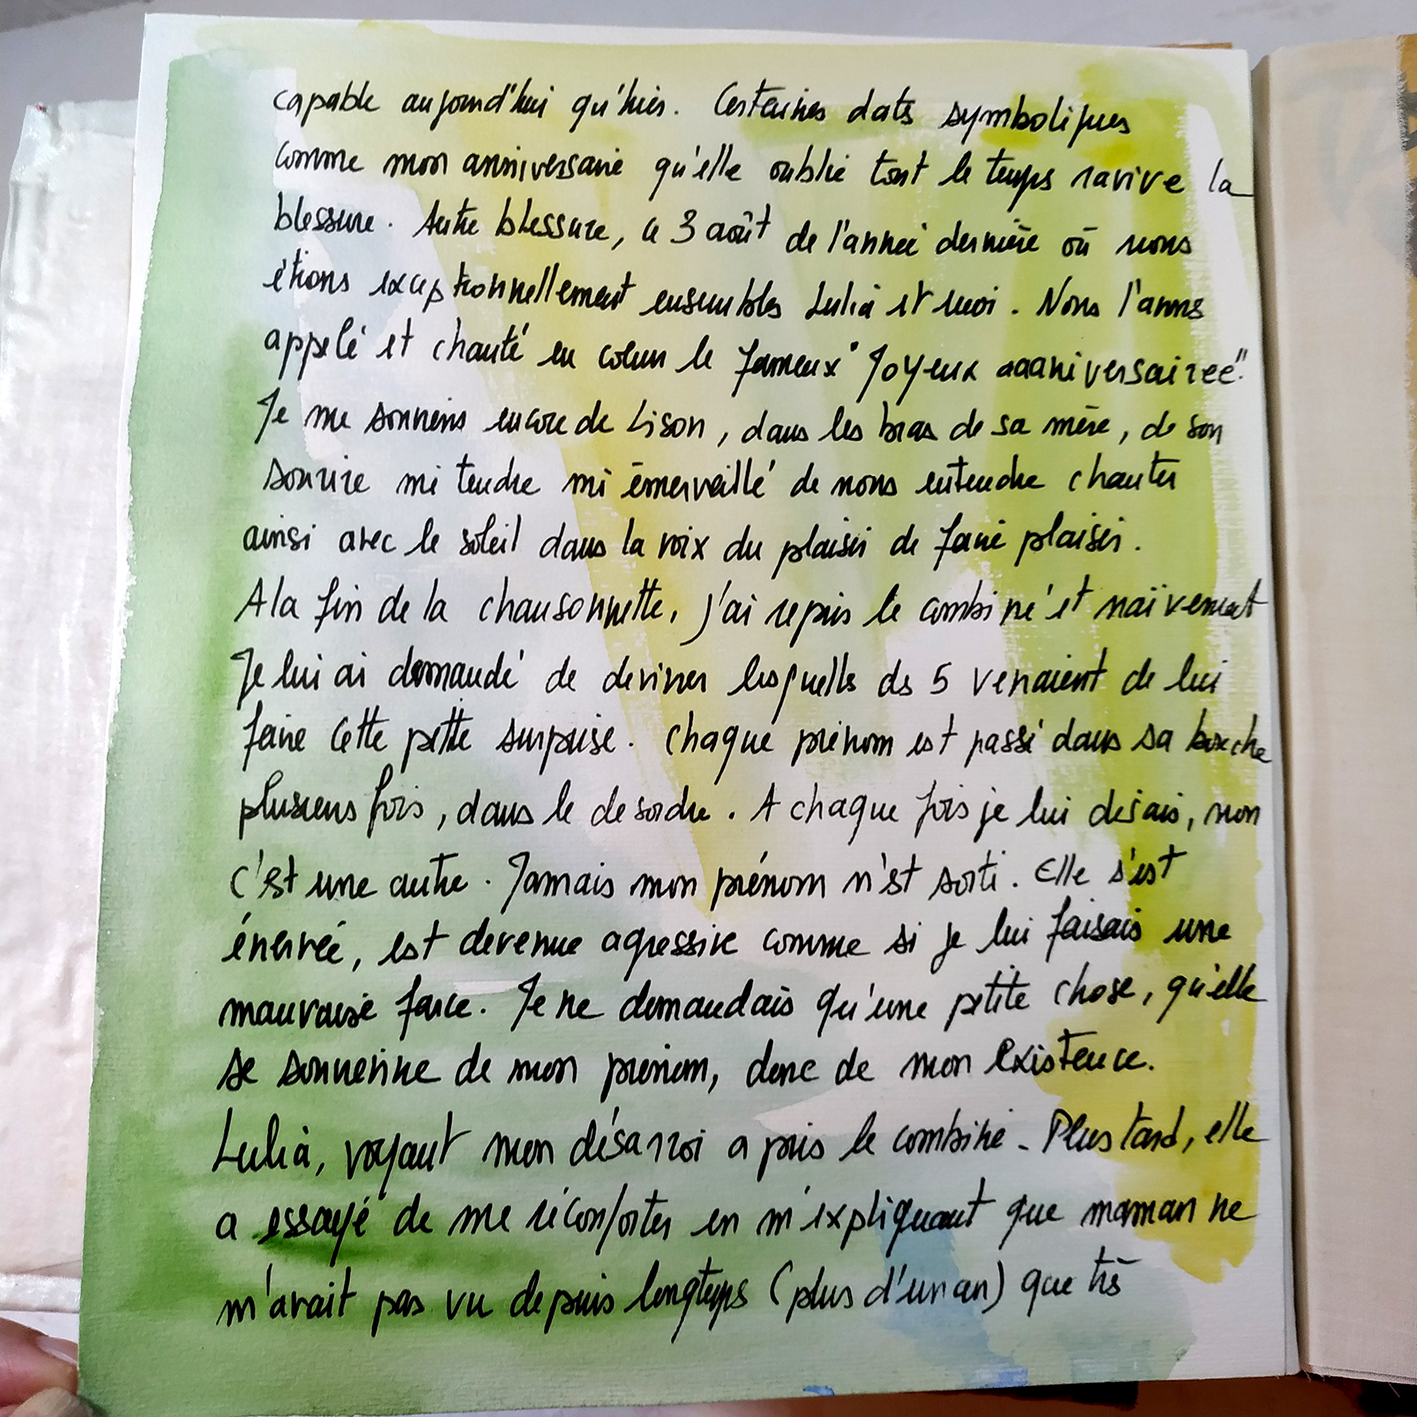 capable aujourd'hui qu'hier. Certaines dates symboliques
comme mon anniversaire qu'elle oublie tout le temps ravive la
blessure. Autre blessure, ce 3 août de l'année dernière où nous
étions exceptionnellement ensembles Lulià et moi. Nous l'avons
appelé et chanté en coeur le fameux "Joyeux aaanniversairee".
Je me souviens encore de Lison, dans les bras de sa mère, de son
sourire mi tendre mi émerveillé de nous entendre chanter
ainsi avec le soleil dans la voix du plaisir de faire plaisir.
A la fin de la chansonnette, j'ai repris le combiné et naïvement
Je lui ai demandé de deviner lesquelles des 5 venaient de lui
faire cette petite surprise. Chaque prénom est passé dans sa bouche
plusieurs fois, dans le desordre. A chaque fois je lui disais, non
c'est une autre. Jamais mon prénom n'est sorti. Elle s'est
énervée, est devenue agressive comme si je lui faisais une
mauvaise farce. Je ne demandais qu'une petite chose, qu'elle
se souvienne de mon prénom, donc de mon existence.
Lulià, voyant mon désarroi a pris le combiné. Plus tard, elle
a essayé de me réconforter en m'expliquant que maman ne
m'avait pas vu depuis longtemps (plus d'un an) que très